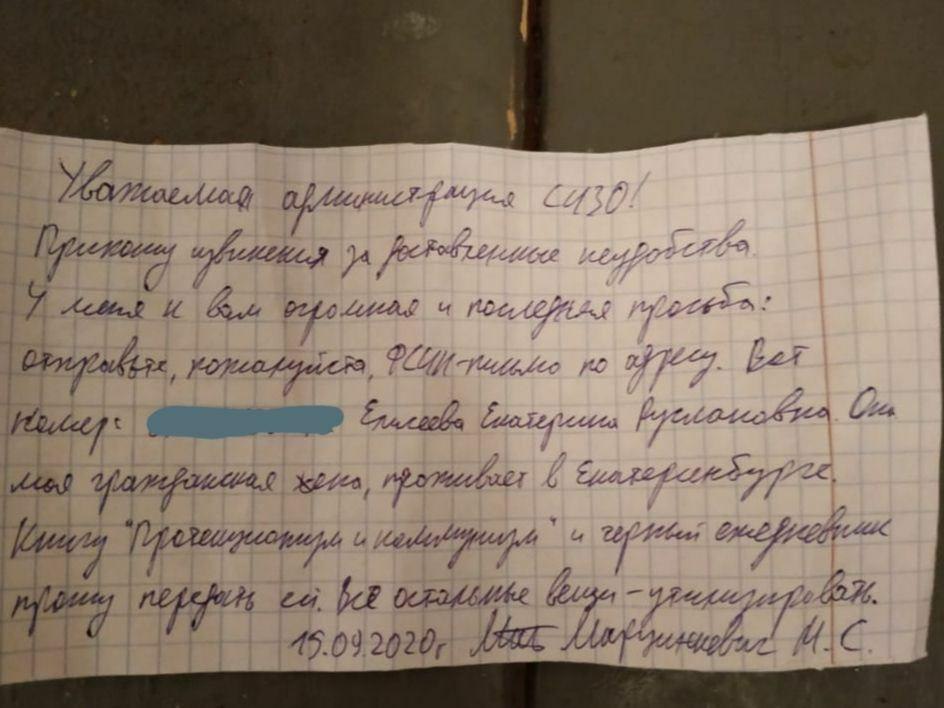 Уважаемая администрация СИЗО!
Приношу извинения за доставленные неудобства.
У меня к вам огромная и последняя просьба:
отправьте, пожалуйста, ФСИН-письмо по адресу. Вот
номер: Елисеева Екатерина Руслановна. Она
моя гражданская жена, проживает в Екатеринбурге.
Книгу "Протекционизм и коммунизм" и черный ежедневник
прошу передать ей. Все остальные вещи - утилизировать.
15.09.2020г Марцинкевич М. С.